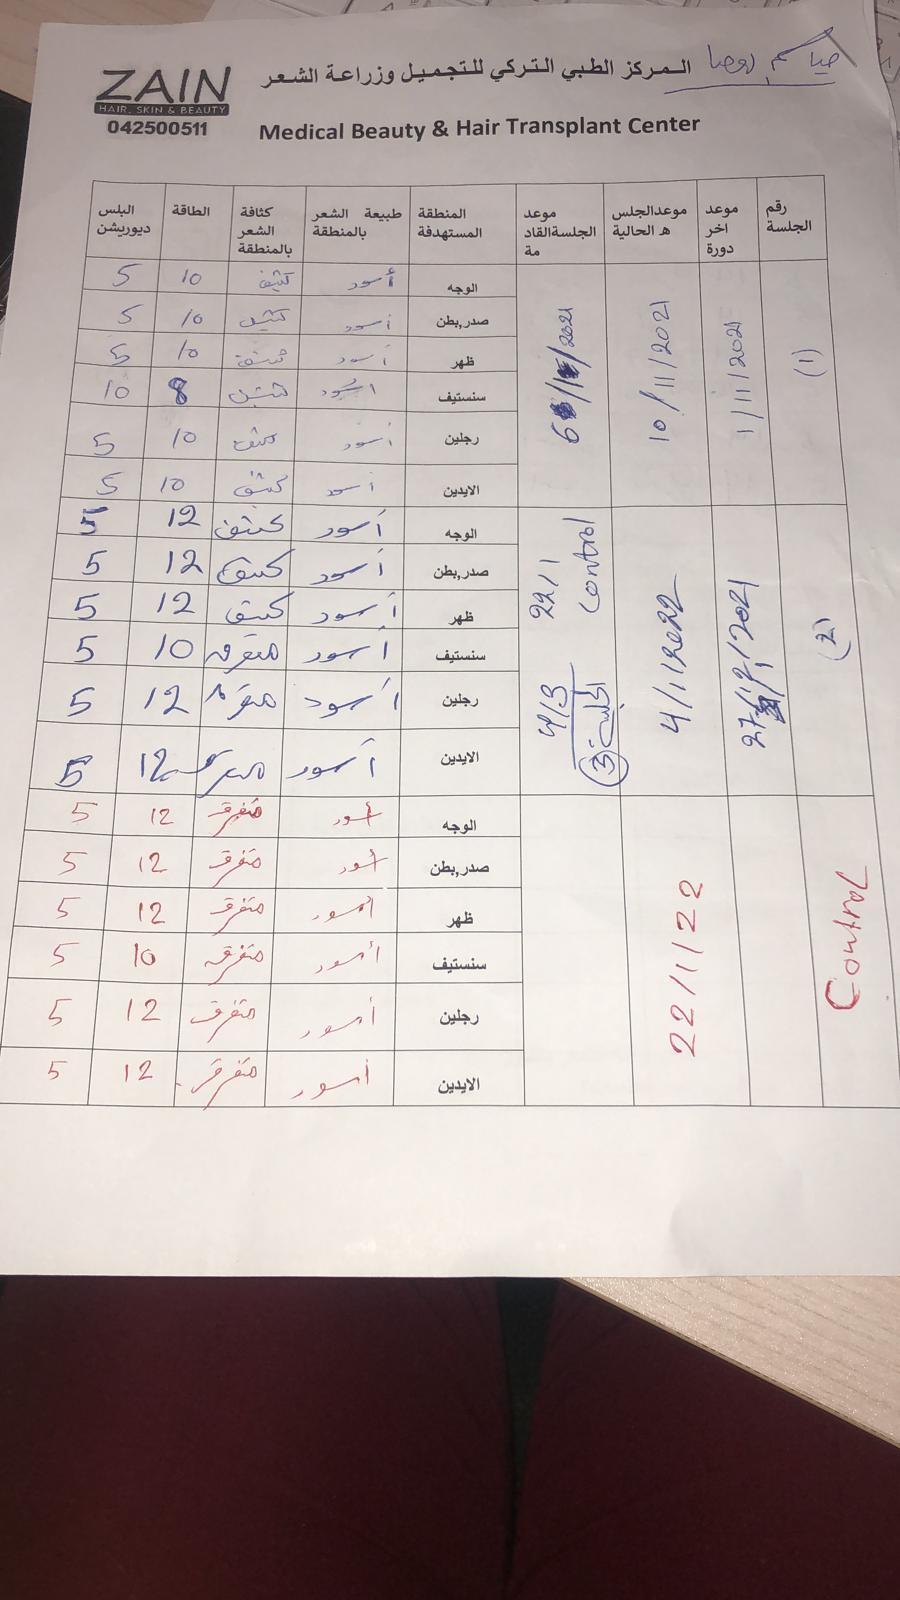 ZAIN
HAIR, SKIN & BEAUTY
042500511
المركز الطبي التركي للتجميل وزراعة الشعر
Medical Beauty & Hair Transplant Center
رقم الجلسة موعد اخر دورة موعدالجلس ه الحالية موعد الجلسةالقاد مة المنطقة المستهدفة طبيعة الشعر بالمنطقة كثافة الشعر بالمنطقة الطاقة البلس ديوريشن
(1) 1/11/2021 10/11/2021
الوجه أسود كثيف 10 5
صدر,بطن أسود كثيف 10 5
ظهر أسود كثيف 10 5
سنستيف اسود كثيف 8 10
رجلين أسود كثيف 10 5
الايدين أسود كثيف 10 5
(2) 27/12/2021 4/1/2022 22/1 control 4/3 الجلسة (3)
الوجه أسود كثيف 12 5
صدر,بطن أسود كثيف 12 5
ظهر أسود كثيف 12 5
سنستيف أسود متفرق 10 5
رجلين أسود متفرق 12 5
الايدين أسود متفرق 12 5
Control 22/1/22
الوجه أسود متفرق 12 5
صدر,بطن أسود متفرق 12 5
ظهر أسود متفرق 12 5
سنستيف أسود متفرق 10 5
رجلين أسود متفرق 12 5
الايدين أسود متفرق 12 5